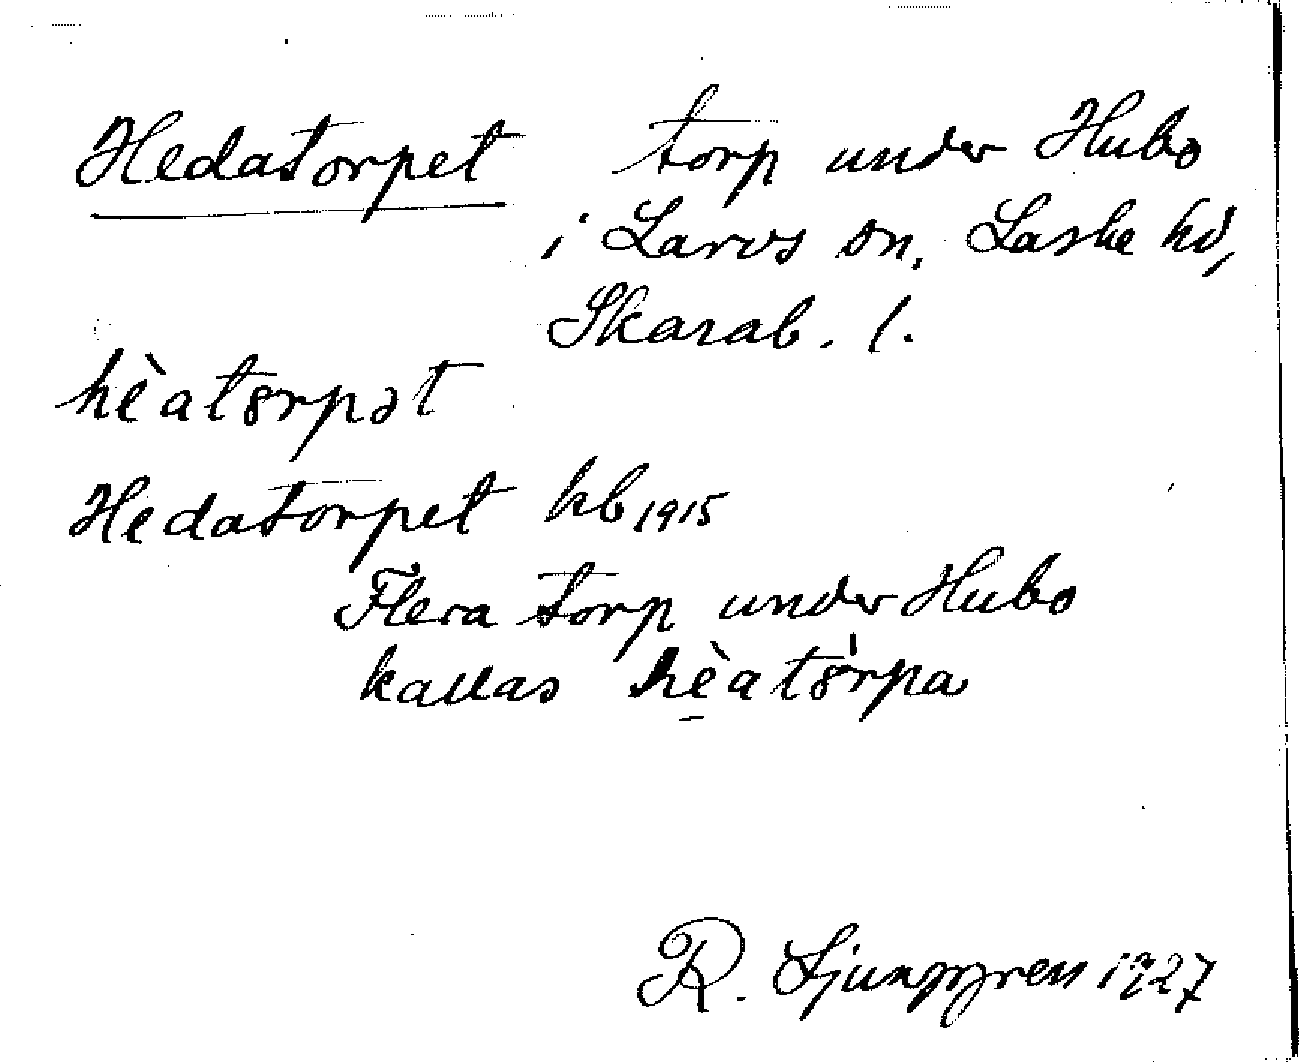 Hedatorpet torp under Hubo
i Larvs sn, Laske hd,
Skarab. l.
hèatərpət
Hedatorpet kb 1915
Flera torp under Hubo
kallas hèatə̍rpa
R. Ljunggren 1927